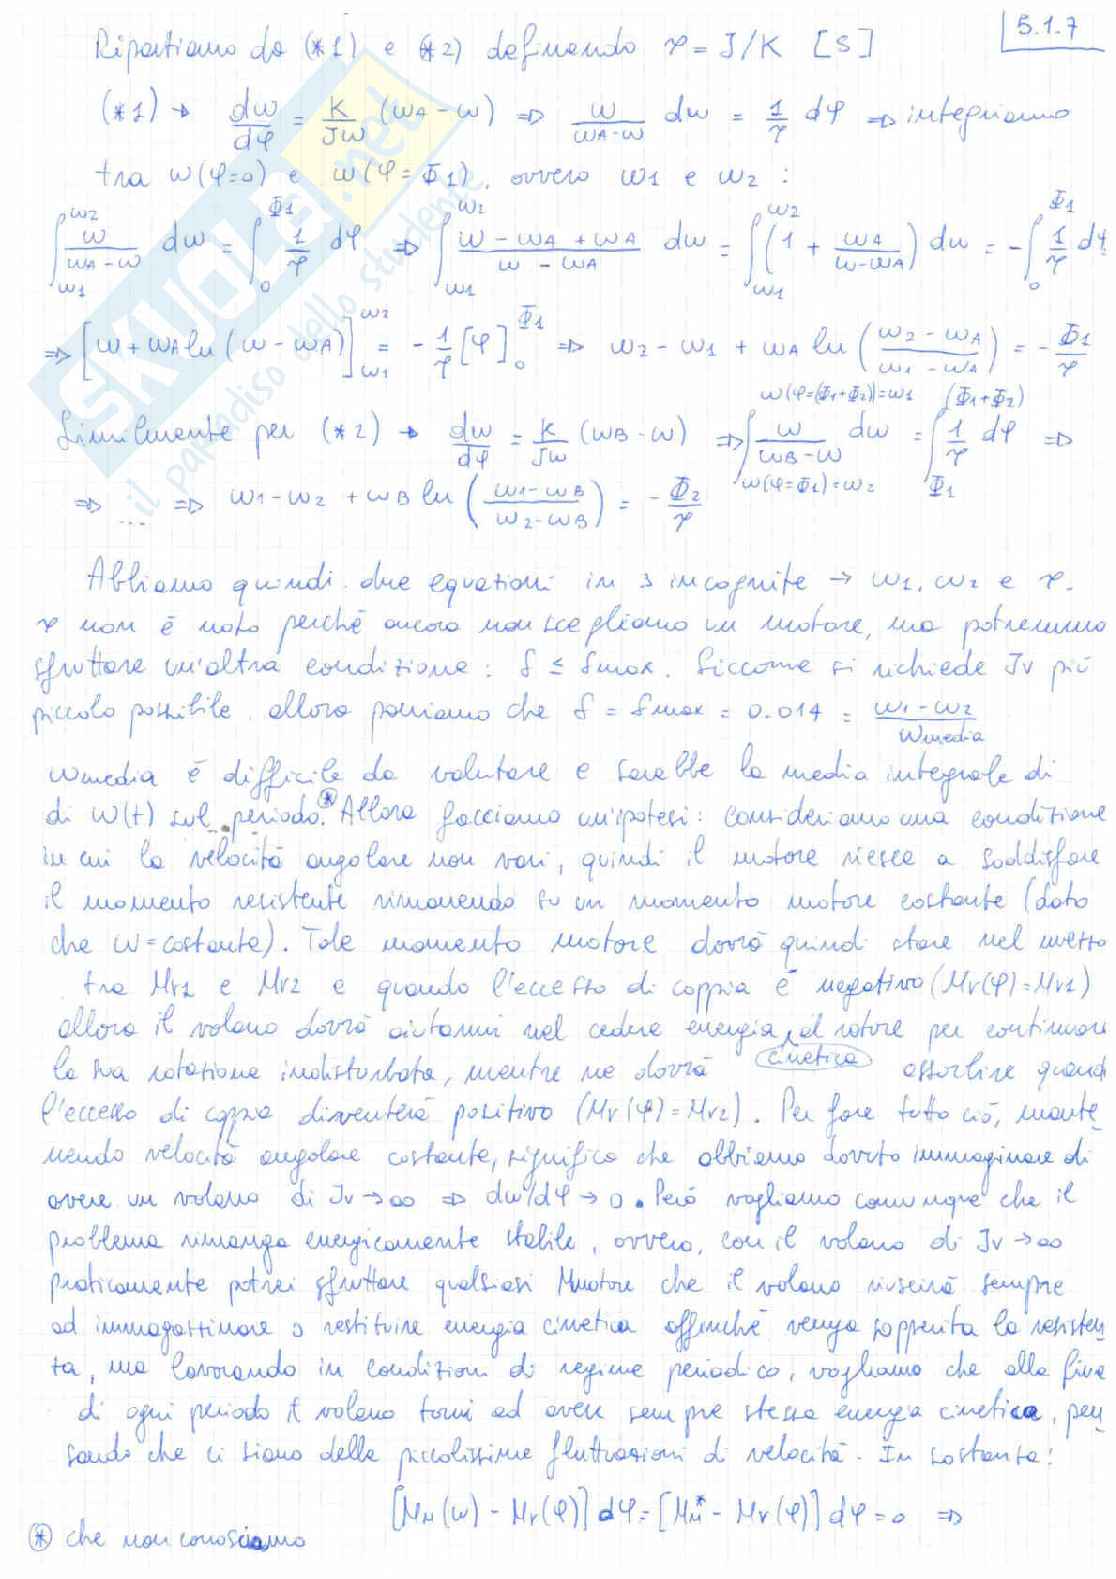 5.1.7
Ripartiamo da (*1) e (*2) definendo τ = J/K [s]
(*1) → dω/dφ = K/Jω (ωA - ω) ⇒ ω/(ωA-ω) dω = 1/τ dφ ⇒ integriamo
tra ω(φ=0) e ω(φ=Φ1), ovvero ω1 e ω2 :
∫_ω1^ω2 ω/(ωA-ω) dω = ∫_0^Φ1 1/τ dφ ⇒ ∫_ω1^ω2 (ω - ωA + ωA)/(ω - ωA) dω = ∫_ω1^ω2 (1 + ωA/(ω-ωA)) dω = -∫_0^Φ1 1/τ dφ
⇒ [ω + ωA ln(ω - ωA)]_ω1^ω2 = - 1/τ [φ]_0^Φ1 ⇒ ω2 - ω1 + ωA ln((ω2 - ωA)/(ω1 - ωA)) = - Φ1/τ
Similmente per (*2) → dω/dφ = K/Jω (ωB - ω) ⇒ ∫_ω(φ=Φ1)=ω2^ω(φ=(Φ1+Φ2))=ω1 ω/(ωB-ω) dω = ∫_Φ1^(Φ1+Φ2) 1/τ dφ ⇒
⇒ ... ⇒ ω1 - ω2 + ωB ln((ω1-ωB)/(ω2-ωB)) = - Φ2/τ
Abbiamo quindi due equazioni in 3 incognite → ω1, ω2 e τ.
τ non è noto perché ancora non scegliamo un motore, ma potremmo
sfruttare un'altra condizione : δ ≤ δmax. Siccome si richiede Jv più
piccolo possibile allora poniamo che δ = δmax = 0.014 = (ω1 - ω2)/ωmedia
ωmedia è difficile da valutare e sarebbe la media integrale di
di ω(t) sul periodo.(*) Allora facciamo un'ipotesi : consideriamo una condizione
in cui la velocità angolare non vari, quindi il motore riesce a soddisfare
il momento resistente rimanendo su un momento motore costante (dato
che ω = costante). Tale momento motore dovrà quindi stare nel mezzo
tra Mr1 e Mr2 e quando l'eccesso di coppia è negativo (Mr(φ) = Mr1)
allora il volano dovrà aiutarmi nel cedere energia cinetica al rotore per continuare
la sua rotazione indisturbata, mentre ne dovrà assorbire quando
l'eccesso di coppia diventerà positivo (Mr(φ) = Mr2). Per fare tutto ciò, mante-
nendo velocità angolare costante, significa che abbiamo dovuto immaginare di
avere un volano di Jv → ∞ ⇒ dω/dφ → 0. Però vogliamo comunque che il
problema rimanga energicamente stabile, ovvero, con il volano di Jv → ∞
praticamente potrei sfruttare qualsiasi Mmotore che il volano riuscirà sempre
ad immagazzinare o restituire energia cinetica affinché venga sopperita la resisten-
za, ma lavorando in condizioni di regime periodico, vogliamo che alla fine
di ogni periodo il volano torni ad avere sempre stessa energia cinetica, pen-
sando che ci siano delle piccolissime fluttuazioni di velocità. In sostanza:
[MM(ω) - Mr(φ)] dφ = [MM* - Mr(φ)] dφ = 0 ⇒
(*) che non conosciamo
SKUOLA.net
il paradiso dello studente